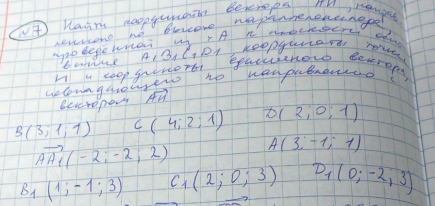 №7 Найти координаты вектора AH, направ-
ленного по высоте параллелепипеда
проведённой из т. A к плоскости осно-
вания A1B1C1D1, координаты точки
H и координаты единичного вектора,
совпадающего по направлению с
вектором AH
B(3;1;1) C(4;2;1) D(2;0;1)
AA1(-2;-2;2) A(3;-1;1)
B1(1;-1;3) C1(2;0;3) D1(0;-2,3)